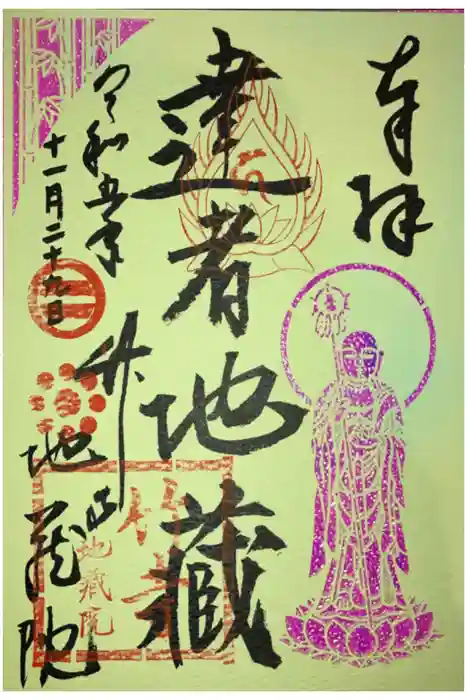 奉拝
達者地蔵
令和五年
十一月二十九日
竹寺
地蔵院
竹
地蔵院